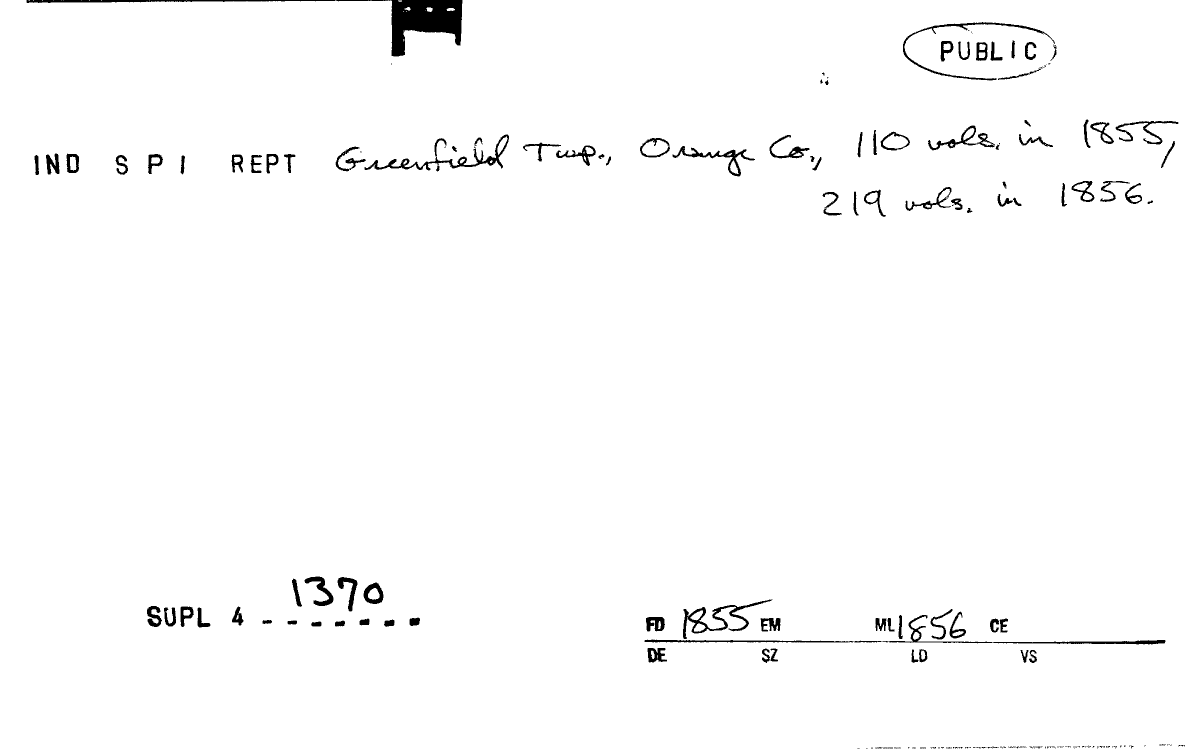 PUBLIC
IND S P I REPT Greenfield Twp., Orange Co., 110 vols. in 1855,
219 vols. in 1856.
SUPL 4 1370
FD 1855 EM ML 1856 CE
DE SZ LD VS